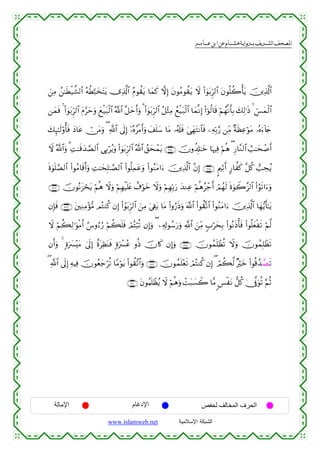 المصحف الشريف برواية هشام عن ابن عامر
ٱلَّذِينَ يَأۡكُلُونَ ٱلرِّبَوٰاْ لَا يَقُومُونَ إِلَّا كَمَا يَقُومُ ٱلَّذِي يَتَخَبَّطُهُ ٱلشَّيۡطَٰنُ مِنَ
ٱلۡمَسِّۚ ذَٰلِكَ بِأَنَّهُمۡ قَالُوٓاْ إِنَّمَا ٱلۡبَيۡعُ مِثۡلُ ٱلرِّبَوٰاْۗ وَأَحَلَّ ٱللَّهُ ٱلۡبَيۡعَ وَحَرَّمَ ٱلرِّبَوٰاْۚ فَمَن
جَآءَهُۥ مَوۡعِظَةٞ مِّن رَّبِّهِۦ فَٱنتَهَىٰ فَلَهُۥ مَا سَلَفَ وَأَمۡرُهُۥٓ إِلَى ٱللَّهِۖ وَمَنۡ عَادَ فَأُوْلَٰٓئِكَ
أَصۡحَٰبُ ٱلنَّارِۖ هُمۡ فِيهَا خَٰلِدُونَ يَمۡحَقُ ٱللَّهُ ٱلرِّبَوٰاْ وَيُرۡبِي ٱلصَّدَقَٰتِۗ وَٱللَّهُ لَا
يُحِبُّ كُلَّ كَفَّارٍ أَثِيمٍ إِنَّ ٱلَّذِينَ ءَامَنُواْ وَعَمِلُواْ ٱلصَّٰلِحَٰتِ وَأَقَامُواْ ٱلصَّلَوٰةَ
وَءَاتَوُاْ ٱلزَّكَوٰةَ لَهُمۡ أَجۡرُهُمۡ عِندَ رَبِّهِمۡ وَلَا خَوۡفٌ عَلَيۡهِمۡ وَلَا هُمۡ يَحۡزَنُونَ
يَٰٓأَيُّهَا ٱلَّذِينَ ءَامَنُواْ ٱتَّقُواْ ٱللَّهَ وَذَرُواْ مَا بَقِيَ مِنَ ٱلرِّبَوٰٓاْ إِن كُنتُم مُّؤۡمِنِينَ فَإِن
لَّمۡ تَفۡعَلُواْ فَأۡذَنُواْ بِحَرۡبٖ مِّنَ ٱللَّهِ وَرَسُولِهِۦۖ وَإِن تُبۡتُمۡ فَلَكُمۡ رُءُوسُ أَمۡوَٰلِكُمۡ لَا
تَظۡلِمُونَ وَلَا تُظۡلَمُونَ وَإِن كَانَ ذُو عُسۡرَةٖ فَنَظِرَةٌ إِلَىٰ مَيۡسَرَةٖۚ وَأَن
تَصَّدَّقُواْ خَيۡرٞ لَّكُمۡ إِن كُنتُمۡ تَعۡلَمُونَ وَٱتَّقُواْ يَوۡمٗا تُرۡجَعُونَ فِيهِ إِلَى ٱللَّهِۖ
ثُمَّ تُوَفَّىٰ كُلُّ نَفۡسٖ مَّا كَسَبَتۡ وَهُمۡ لَا يُظۡلَمُونَ
الحرف المخالف لحفص الإدغام الإمالة
www.islamweb.net الشبكة الإسلامية